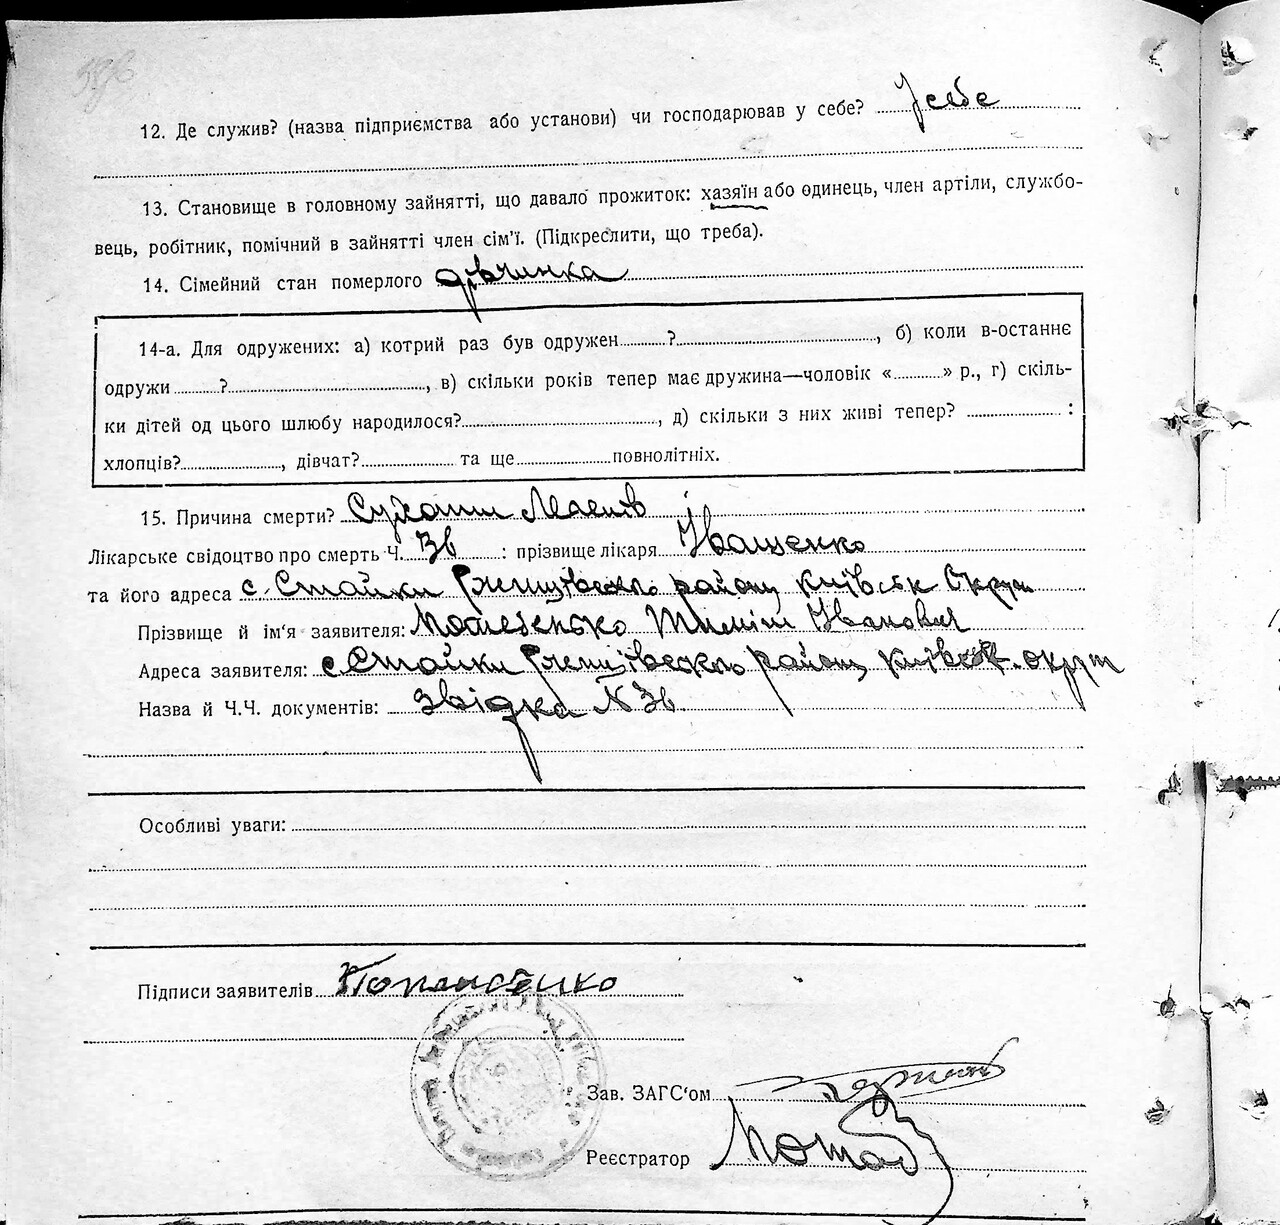 12. Де служив? (назва підприємства або установи) чи господарював у себе? У себе
13. Становище в головному зайнятті, що давало прожиток: хазяїн або одинець, член артіли, службо-
вець, робітник, помічний в зайнятті член сім'ї. (Підкреслити, що треба).
14. Сімейний стан померлого дівчинка
14-а. Для одружених: а) котрий раз був одружен ? , б) коли в-останнє
одружи ? , в) скільки років тепер має дружина—чоловік « » р., г) скіль-
ки дітей од цього шлюбу народилося? , д) скільки з них живі тепер? :
хлопців? , дівчат? та ще повнолітніх.
15. Причина смерти?
Лікарське свідоцтво про смерть Ч. : прізвище лікаря Іващенко
та його адреса с. Стайки району Київськ Округи
Прізвище й ім'я заявителя: Іванович
Адреса заявителя: с Стайки району Київськ. округи
Назва й Ч.Ч. документів: Звідка N
Особливі уваги:
Підписи заявителів
Зав. ЗАГС'ом
Реєстратор